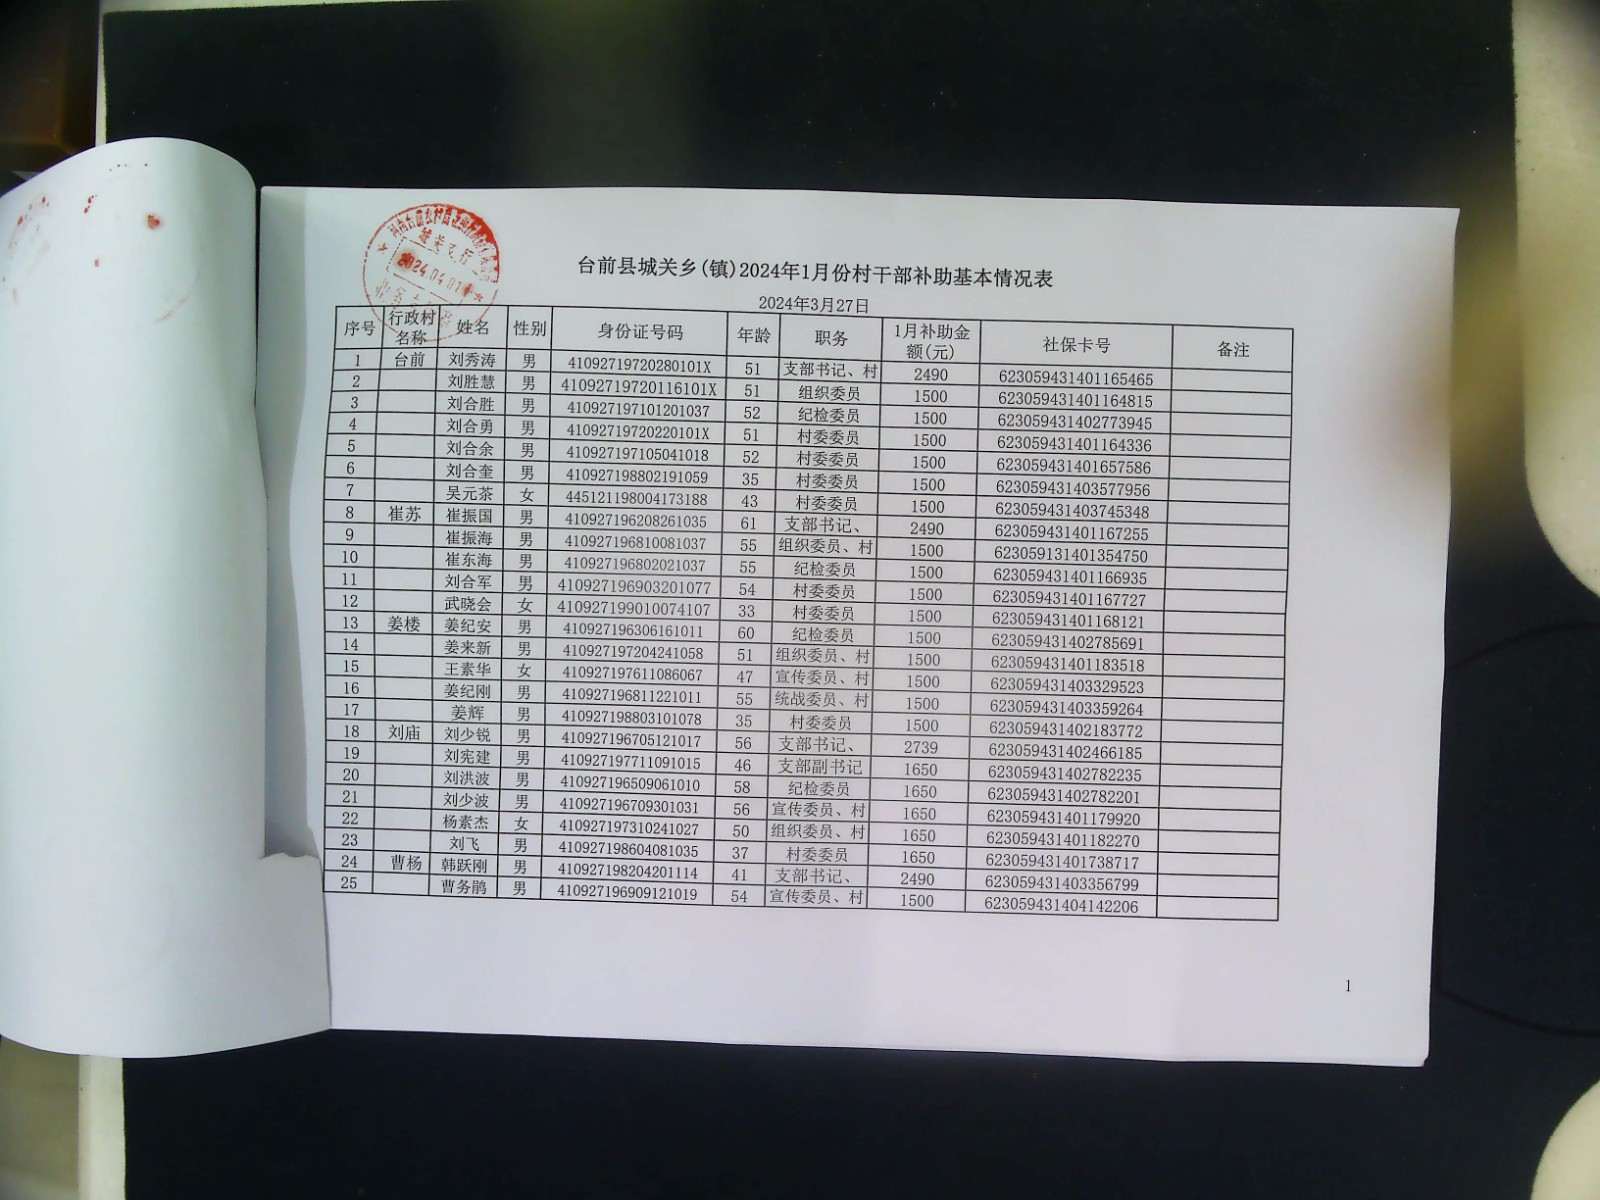 城关支行
2024.04.01
台前县城关乡(镇)2024年1月份村干部补助基本情况表
2024年3月27日
序号 行政村名称 姓名 性别 身份证号码 年龄 职务 1月补助金额(元) 社保卡号 备注
1 台前 刘秀涛 男 41092719720280101X 51 支部书记、村 2490 623059431401165465
2 刘胜慧 男 41092719720116101X 51 组织委员 1500 623059431401164815
3 刘合胜 男 410927197101201037 52 纪检委员 1500 623059431402773945
4 刘合勇 男 41092719720220101X 51 村委委员 1500 623059431401164336
5 刘合余 男 410927197105041018 52 村委委员 1500 623059431401657586
6 刘合奎 男 410927198802191059 35 村委委员 1500 623059431403577956
7 吴元茶 女 445121198004173188 43 村委委员 1500 623059431403745348
8 崔苏 崔振国 男 410927196208261035 61 支部书记、 2490 623059431401167255
9 崔振海 男 410927196810081037 55 组织委员、村 1500 623059131401354750
10 崔东海 男 410927196802021037 55 纪检委员 1500 623059431401166935
11 刘合军 男 410927196903201077 54 村委委员 1500 623059431401167727
12 武晓会 女 410927199010074107 33 村委委员 1500 623059431401168121
13 姜楼 姜纪安 男 410927196306161011 60 纪检委员 1500 623059431402785691
14 姜来新 男 410927197204241058 51 组织委员、村 1500 623059431401183518
15 王素华 女 410927197611086067 47 宣传委员、村 1500 623059431403329523
16 姜纪刚 男 410927196811221011 55 统战委员、村 1500 623059431403359264
17 姜辉 男 410927198803101078 35 村委委员 1500 623059431402183772
18 刘庙 刘少锐 男 410927196705121017 56 支部书记、 2739 623059431402466185
19 刘宪建 男 410927197711091015 46 支部副书记 1650 623059431402782235
20 刘洪波 男 410927196509061010 58 纪检委员 1650 623059431402782201
21 刘少波 男 410927196709301031 56 宣传委员、村 1650 623059431401179920
22 杨素杰 女 410927197310241027 50 组织委员、村 1650 623059431401182270
23 刘飞 男 410927198604081035 37 村委委员 1650 623059431401738717
24 曹杨 韩跃刚 男 410927198204201114 41 支部书记、 2490 623059431403356799
25 曹务鹃 男 410927196909121019 54 宣传委员、村 1500 623059431404142206
1